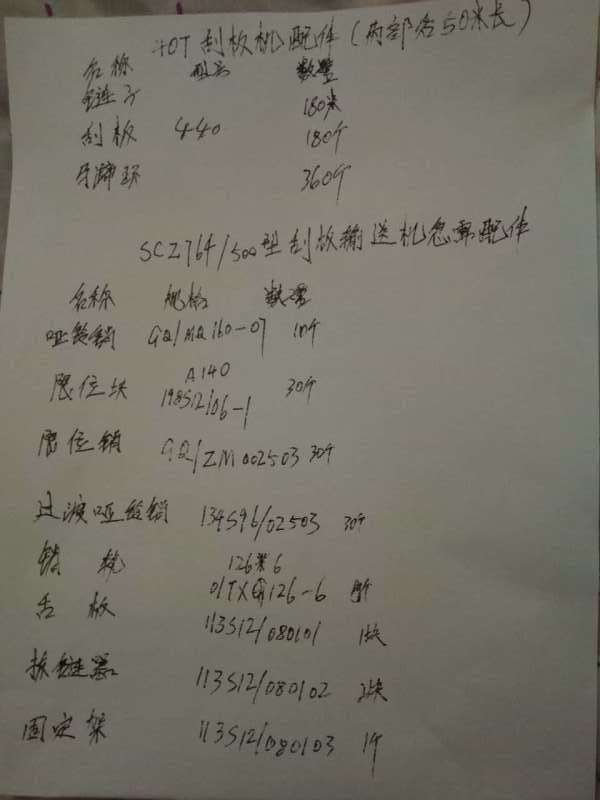 40T 刮板机配件（两部各50米长）
名称 型号 数量
链子 180米
刮板 440 180个
马蹄环 360个
SCZ764/500型刮板输送机急需配件
名称 规格 数量
哑铃销 GQ/MQ160-07 10个
限位块 A140 198S12/06-1 30个
限位销 GQ/ZM002503 30个
过渡哑铃销 134S96/02503 30个
链轮 126米6
01TXQ126-6
舌板 113S12/080101 1块
拆链器 113S12/080102 2块
固定架 113S12/080103 1个